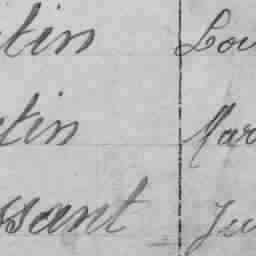 tin Lou
tin Mar
ssant Ju